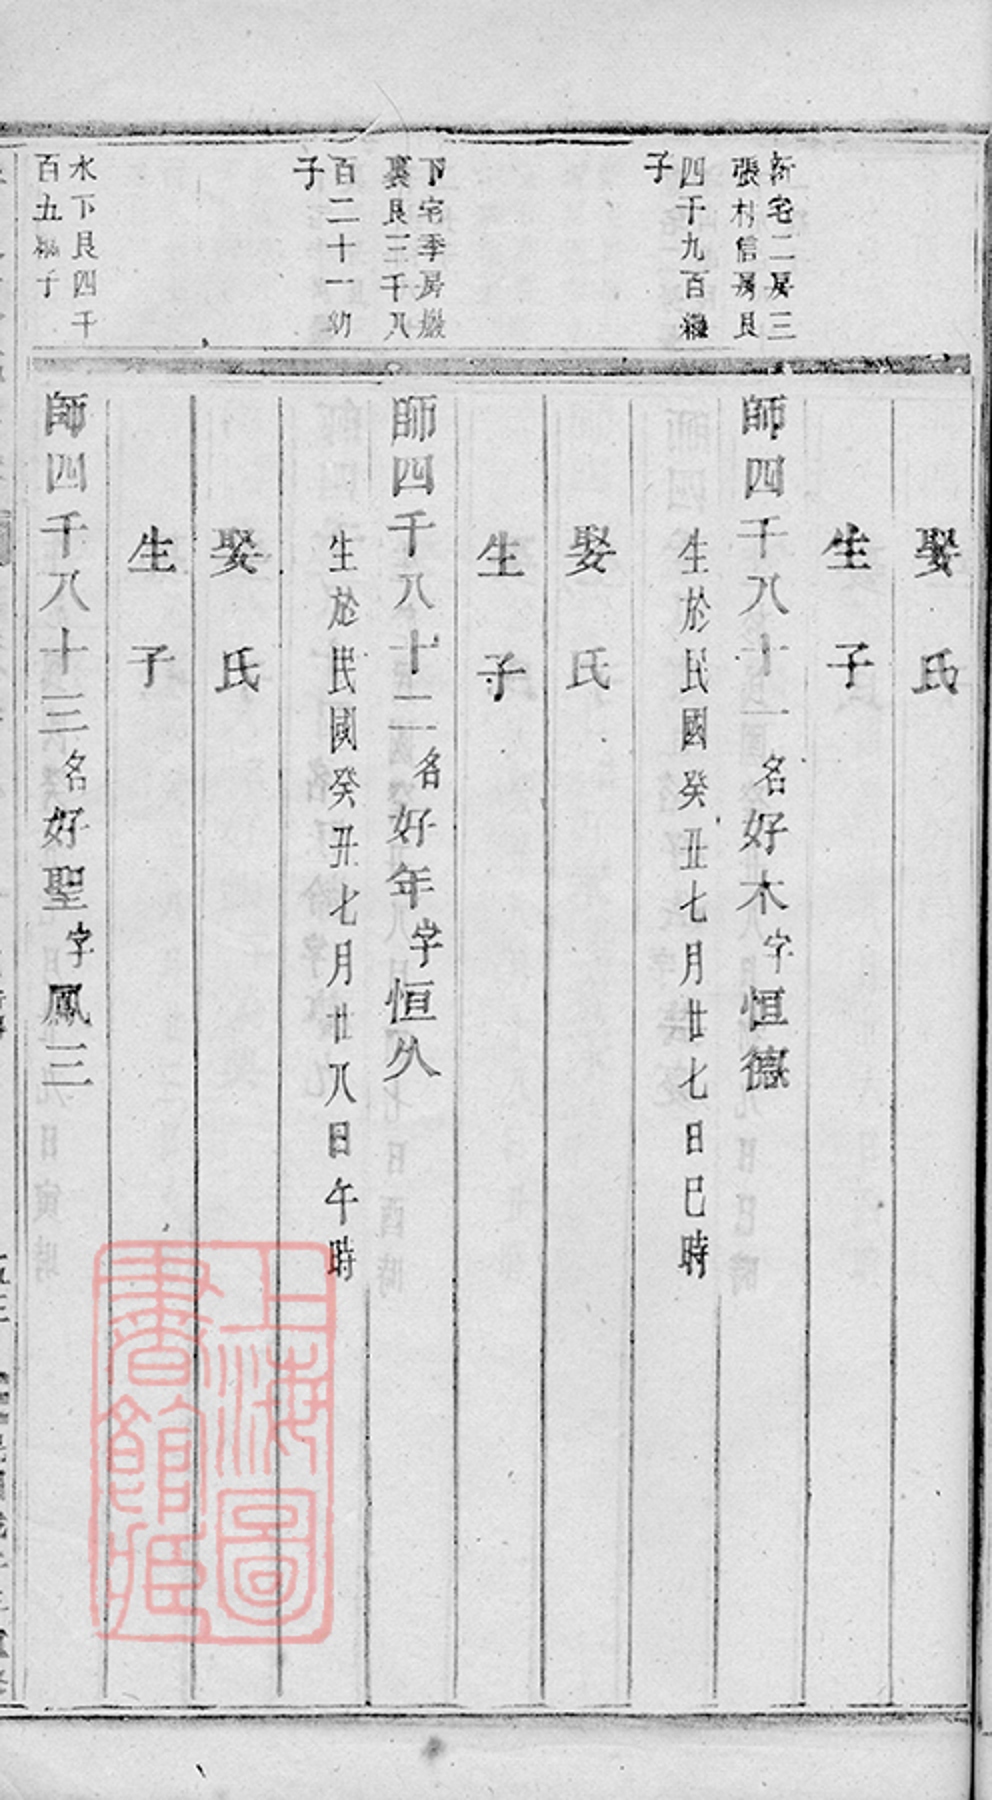 娶氏
生子
新宅二房三
張村信房良
四千九百
子
師四千八十一名好木字恒德
生於民國癸丑七月廿七日巳時
娶氏
生子
下宅季房
裏良三千八
百二十一幼
子
師四千八十二名好年字恒久
生於民國癸丑七月廿八日午時
娶氏
生子
水下良四千
百九子
師四千八十三名好聖字鳳三
上海圖
書館藏